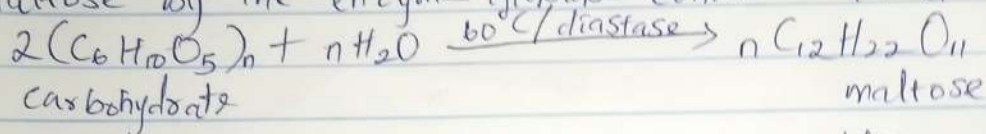 2(C6H10O5)n + nH2O 60°C/diastase> nC12H22O11
carbohydrate maltose